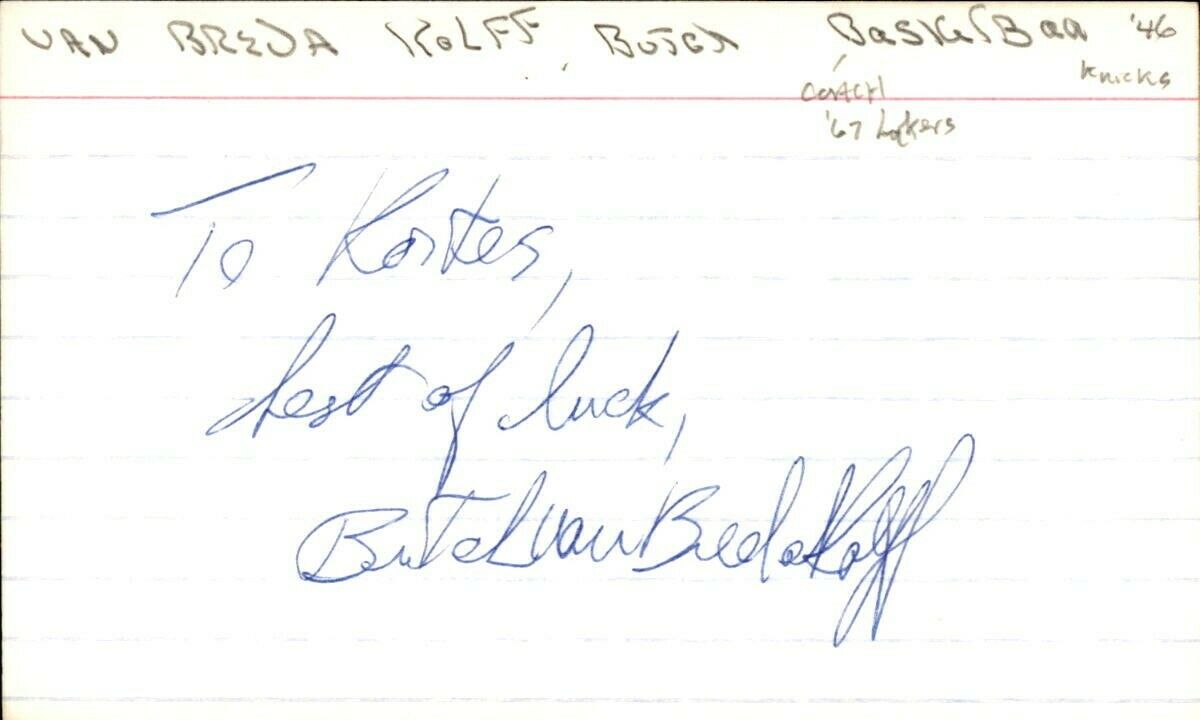 VAN BREDA KOLFF, BUTCH BASKETBALL '46
Knicks
COACH
'67 Lakers
To Kostes,
best of luck,
Butch van Breda Kolff